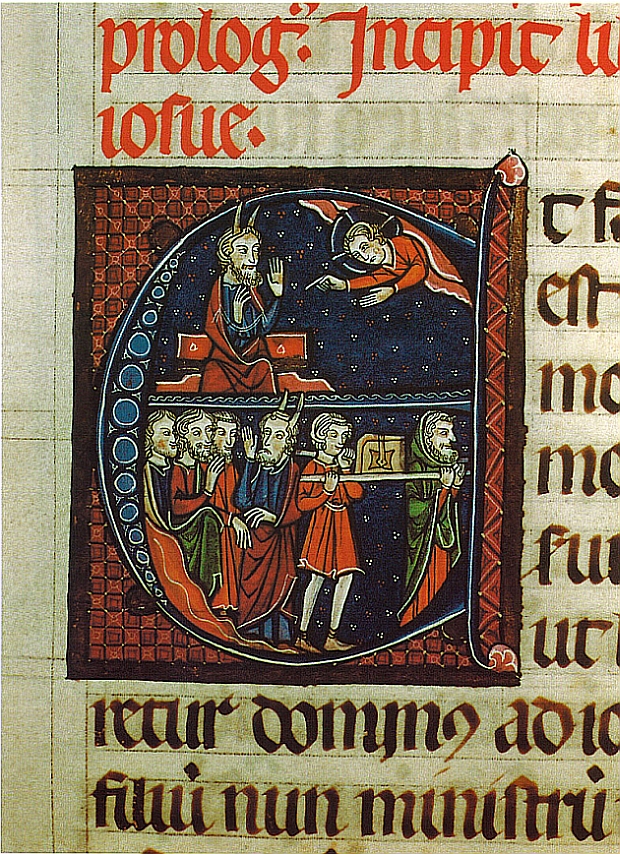 prolog⁹. Incipit li
iosue.
Et fa
est
mo
mo
sui
ut l
retur dominꝰ ad io
filiū nun ministrū